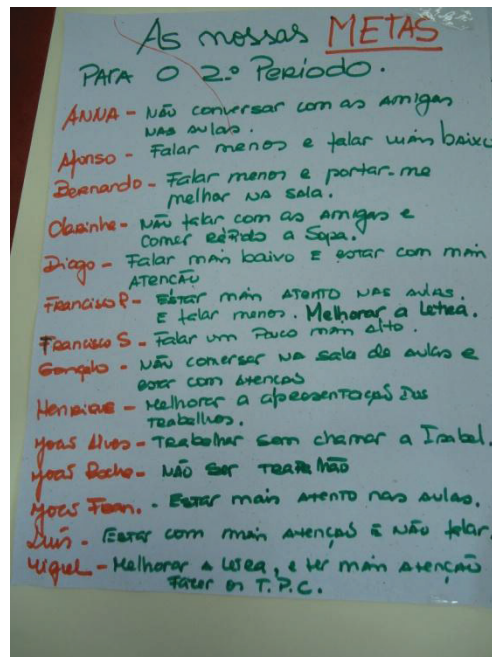 As nossas METAS
PARA O 2.º Período.
ANNA - Não conversar com as amigas
nas aulas.
Afonso - Falar menos e falar mais baixo
Bernardo - Falar menos e portar-me
melhor na sala.
Clarinha - Não falar com as amigas e
Comer rápido a Sopa.
Diogo - Falar mais baixo E estar com mais
ATENÇÃO
Francisco P - Estar mais atento nas aulas.
E falar menos. Melhorar a letra.
Francisco S - Falar um Pouco mais alto.
Gonçalo - Não conversar na sala de aulas e
estar com atenção
Henrique - Melhorar a apresentação Dos
trabalhos.
João Alves - Trabalhar sem chamar a Isabel.
João Rocha - Não ser
João Fran. - Estar mais atento nas aulas.
Luís - Estar com mais atenção E Não falar.
Miguel - Melhorar a letra, e ter mais atenção
Fazer os T.P.C.